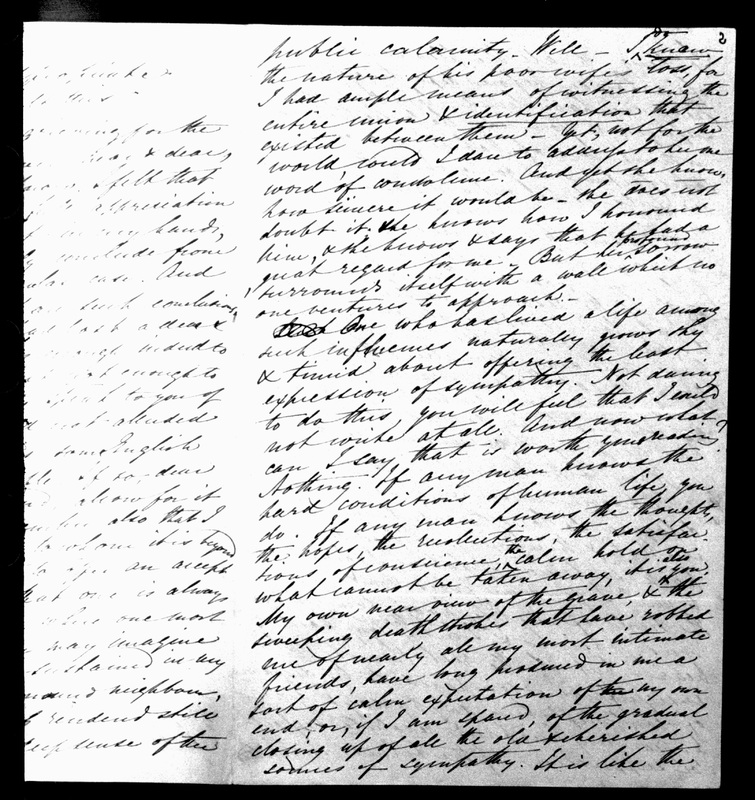 2
public calamity. Will – I do know
the nature of his poor wife's loss for
I had ample means of witnessing the
entire union & identification that
existed between them – yet, not for the
world, would I dare to address to her one
word of condolence. And yet she knows
how sincere it would be – she does not
doubt it. She knows how I honoured
him, & she knows & says that he had a
great regard for me. But her profound sorrow
surrounds itself with a wall which no
one ventures to approach. –
One who has lived a life among
such influences naturally grows shy
& timid about offering the least
expression of sympathy. Not daring
to do this, you will feel that I could
not write at all. And now what
can I say, that is worth your reading?
Nothing. If any man knows the
hard conditions of human life, you
do. If any man knows the thought,
the hopes, the recollections, the satisfac
tions of conscience, the calm hold on
what cannot be taken away, it is you.
My own near view of the grave, & the
sweeping death strokes that have robbed
me of nearly all my most intimate
friends, have long produced in me a
sort of calm expectation of my own
end, or, if I am spared, of the gradual
closing up of all the old & cherished
sources of sympathy. It is like the
for the
& dear,
& felt that
appreciation
my hands,
conclude from
case. And
such conclusion,
a dear &
indeed to
enough to
to you of
not alluded
some English
if so, dear
allow for it
also that I
to whom it is beyond
an accept
that one is always
where one most
may imagine
sustained in my
neighbour,
rendered still
deep sense of the